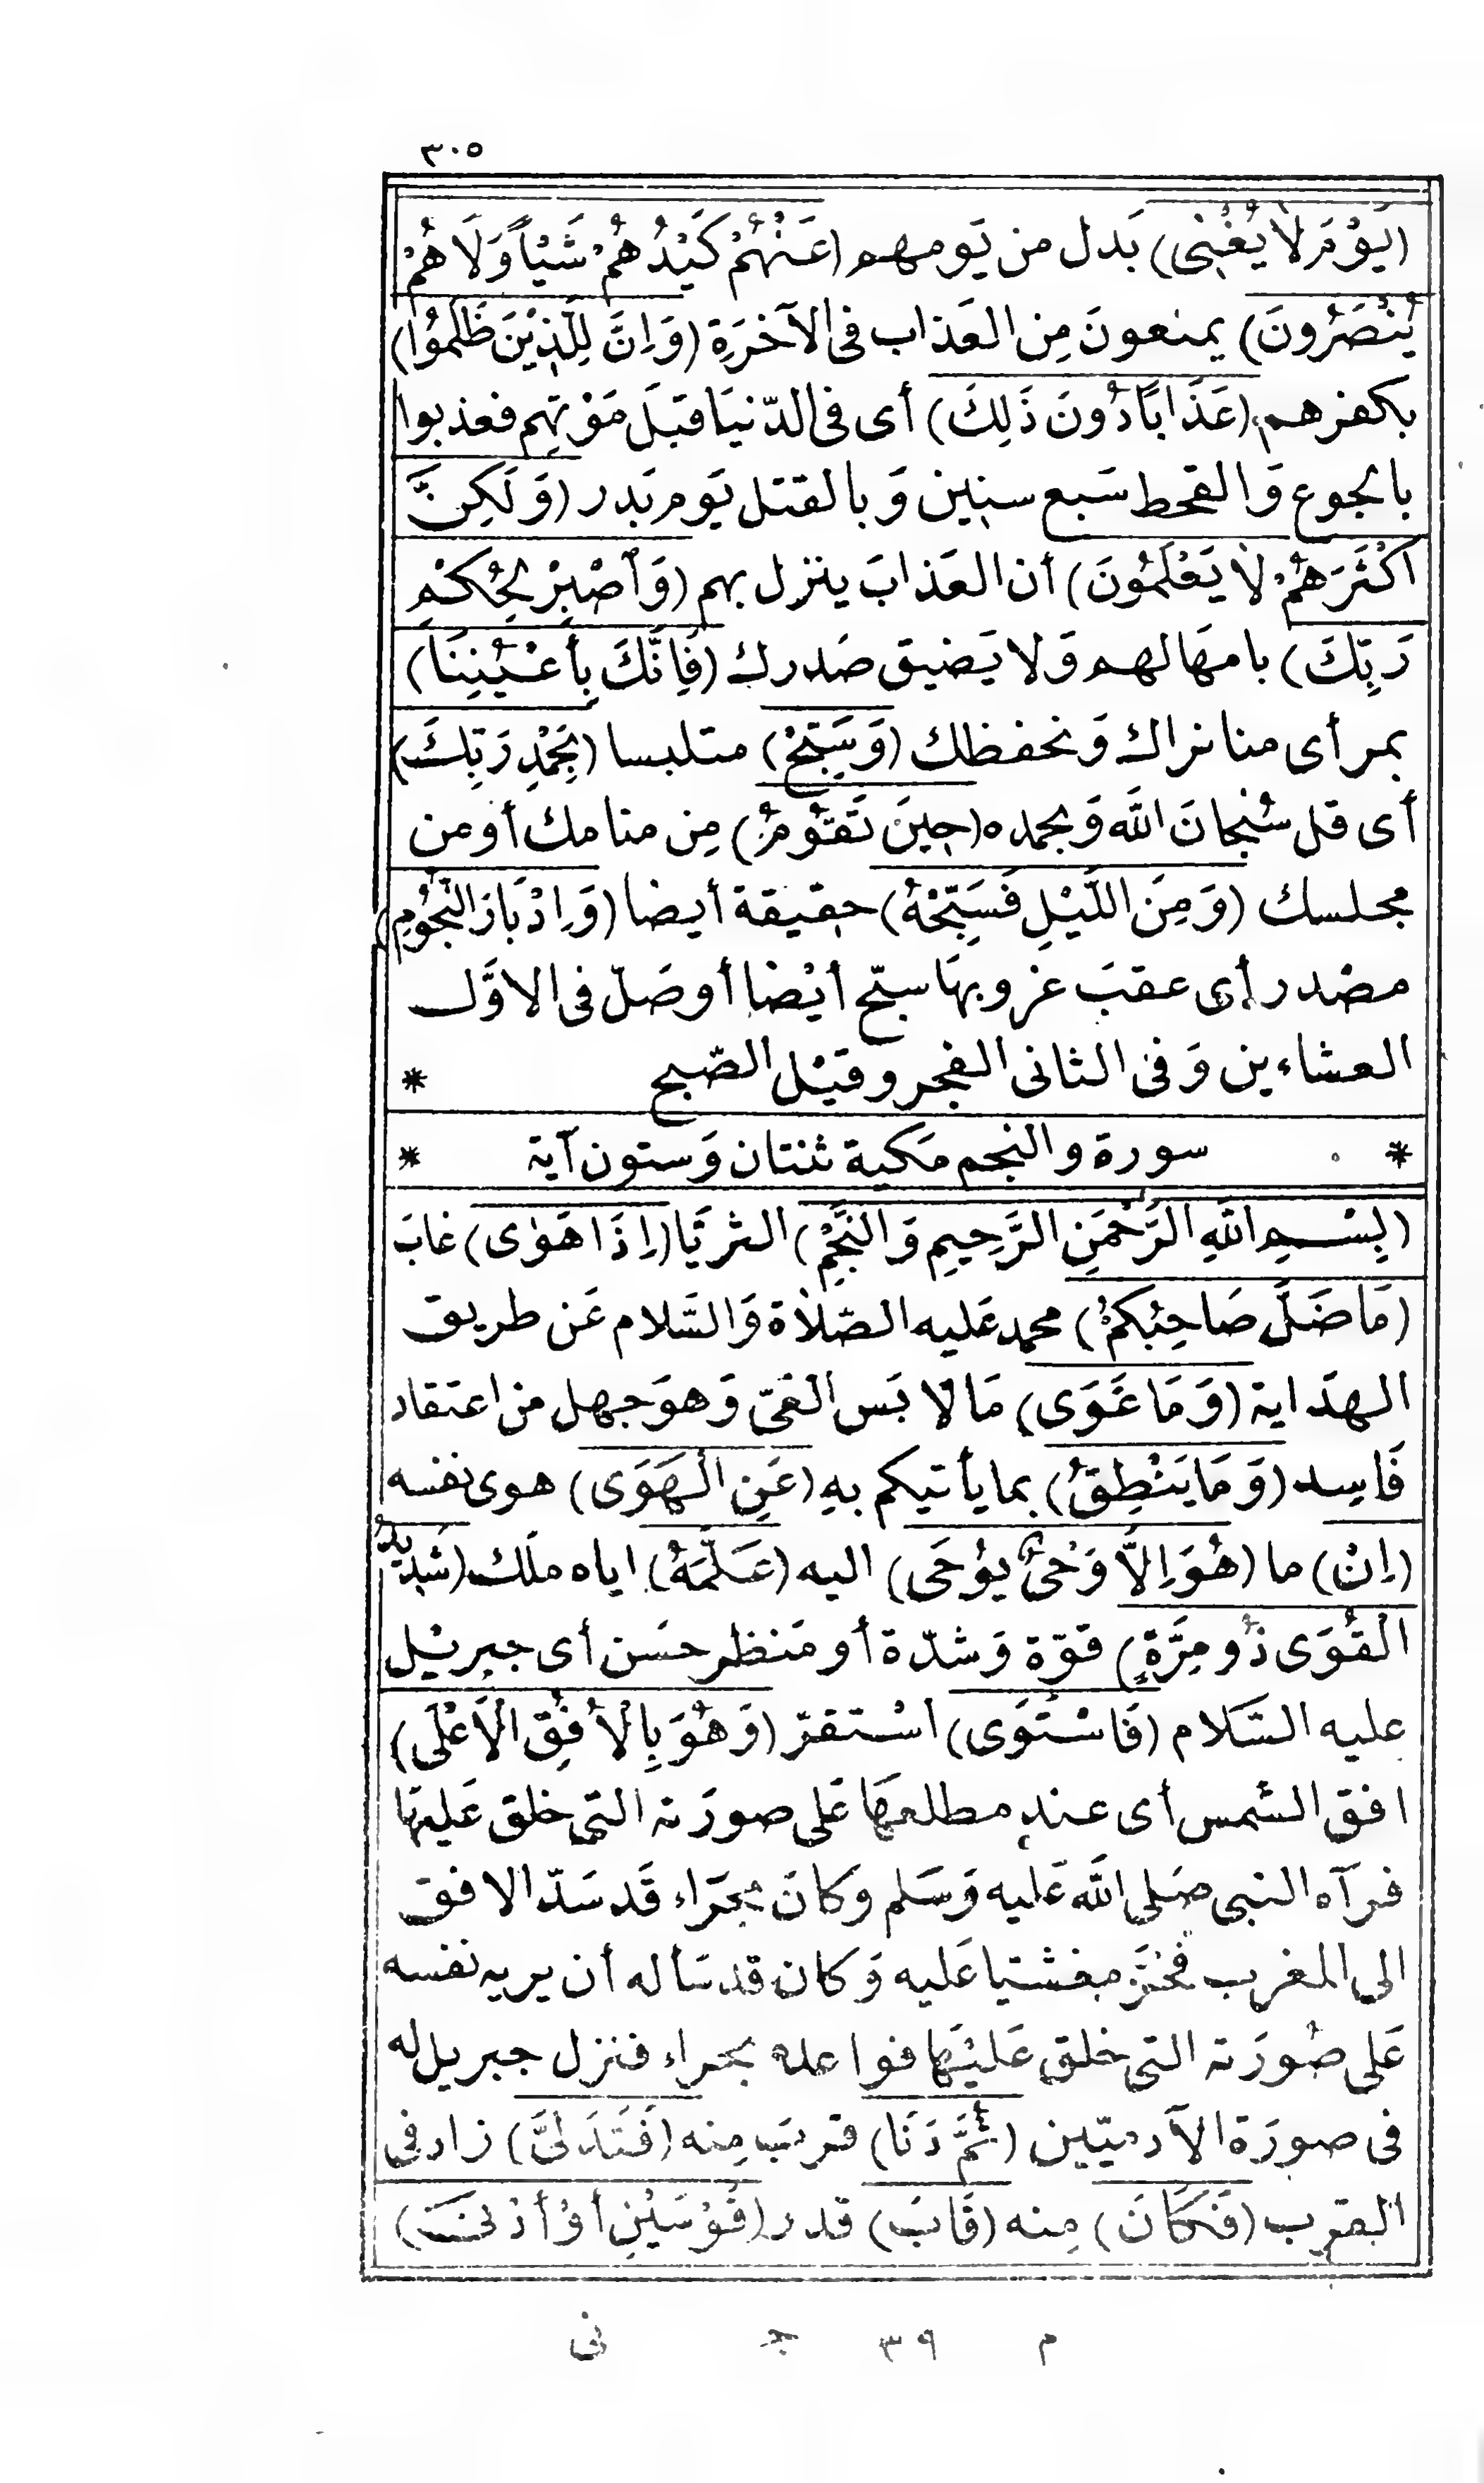 ٣٠٥
(يَوْمَ لَا يُغْنِى) بَدل من يَومهم (عَنْهُمْ كَيْدُهُمْ شَيْأً وَلَا هُمْ
يُنْصَرُونَ) يمنعونَ مِن العَذاب فى الآخرَةِ (وَاِنَّ لِلَّذِيْنَ ظَلَمُوا)
بكفرهم (عَذَابًا دُونَ ذَلِكَ) أى فى الدّنيَا قبَلَ مَوْتِهِم فعذبوا
بالجوع وَالقحط سَبع سنين وَبالقتل يَوم بَدر (وَلَكِنَّ
اَكْثَرَهُمْ لَا يَعْلَمُونَ) أن العَذابَ ينزل بهم (وَاصْبِرْ لِحُكْمِ
رَبِّكَ) بامهَالهم وَلا يَضيق صَدرك (فَاِنَّكَ بِأَعْيُنِنَا)
بمرأى منا نراك وَنحفظك (وَسَبِّحْ) متلبسا (بِحَمْدِ رَبِّكَ)
أى قل سُبْحانَ اللَّه وَبحمده (حِينَ تَقُومُ) مِن منامك أو من
مجلسك (وَمِنَ اللَّيْلِ فَسَبِّحْهُ) حقيقة أيضا (وَاِدْبَارَ النُّجُومِ)
مصْدر أى عقبَ غروبهَا سبّح أيْضا أو صَلّ فى الاوَّل
العشاءين وَفى الثانى الفجر وقيْل الصّبح *
* سورة والنجم مَكية ثنتان وَستون آية *
(بِسْمِ اللهِ الرَّحْمَنِ الرَّحِيمِ وَالنَّجْمِ) الثريَّا (اِذَا هَوٰى) غابَ
(مَا ضَلَّ صَاحِبُكُمْ) محمد عَليه الصّلاة وَالسَّلام عَن طريق
الهدَاية (وَمَا غَوَى) مَا لا بَس الغىّ وَهوَ جهل من اعتقاد
فَاسِد (وَمَا يَنْطِقُ) بما يأتيكم بهِ (عَنِ الْهَوَى) هوى نفسه
(اِنْ) ما (هُوَ اِلَّا وَحْىٌ يُوْحَى) اليه (عَلَّمَهُ) اياه مَلَك (شَدِيدُ
الْقُوَى ذُو مِرَّةٍ) قوّة وَشدّة أو مَنظر حسَن أى جبريْل
عليه السَّلام (فَاسْتَوَى) اسْتقرّ (وَهُوَ بِالْأُفُقِ الْأَعْلَى)
افق الشمس أى عند مطلعهَا عَلى صورَته التى خلق عَليهَا
فرآه النبى صَلى اللَّه عَليه وَسَلم وكانَ بحرَاء قَد سَدّ الافق
الى المغرب فخَرَّ مغشيا عَليه وَكان قد سَأله أن يريه نفسه
عَلى صُورَته التى خلق عَليْهَا فواعده بحراء فنزل جبريل له
فى صورَة الآدميّين (ثُمَّ دَنَا) قربَ مِنه (فَتَدَلَّىَ) زاد فى
القرب (فَكَانَ) مِنه (قَابَ) قدر (قَوْسَيْنِ أَوْ أَدْنَى)
م ٣٩ جـ نى